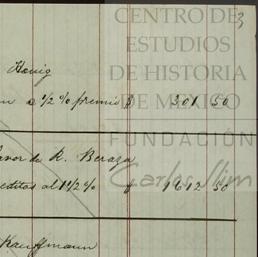 CENTRO DE
ESTUDIOS
DE HISTORIA
DE MEXICO
FUNDACIÓN
Carlos Slim
3
Hanig
n a 1/2 % premio $ 301 50
avor de R. Beraza
editos al 1 1/2 % $ 1612 50
Kauffmann